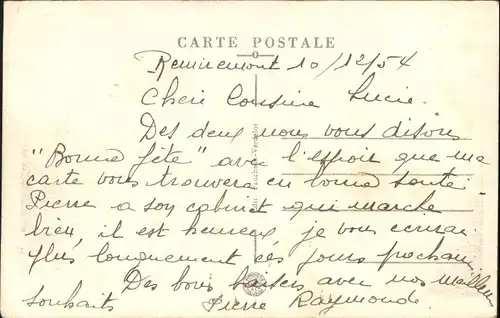 CARTE POSTALE
Remiremont 10/12/54
Cherie Cousine Lucie.
Des deux nous vous disons
"Bonne fête" avec l'espoir que ma
carte vous trouvera en bonne santé.
Pierre a son cabinet qui marche
bien il est heureux je vous écrirai
plus longuement ces jours prochains
Des bons baisers avec nos meilleurs
souhaits Pierre Raymonde.